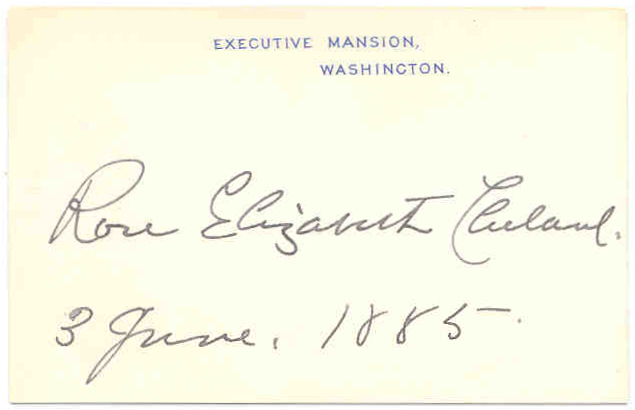 EXECUTIVE MANSION,
WASHINGTON.
Rose Elizabeth Cleveland.
3 June. 1885.